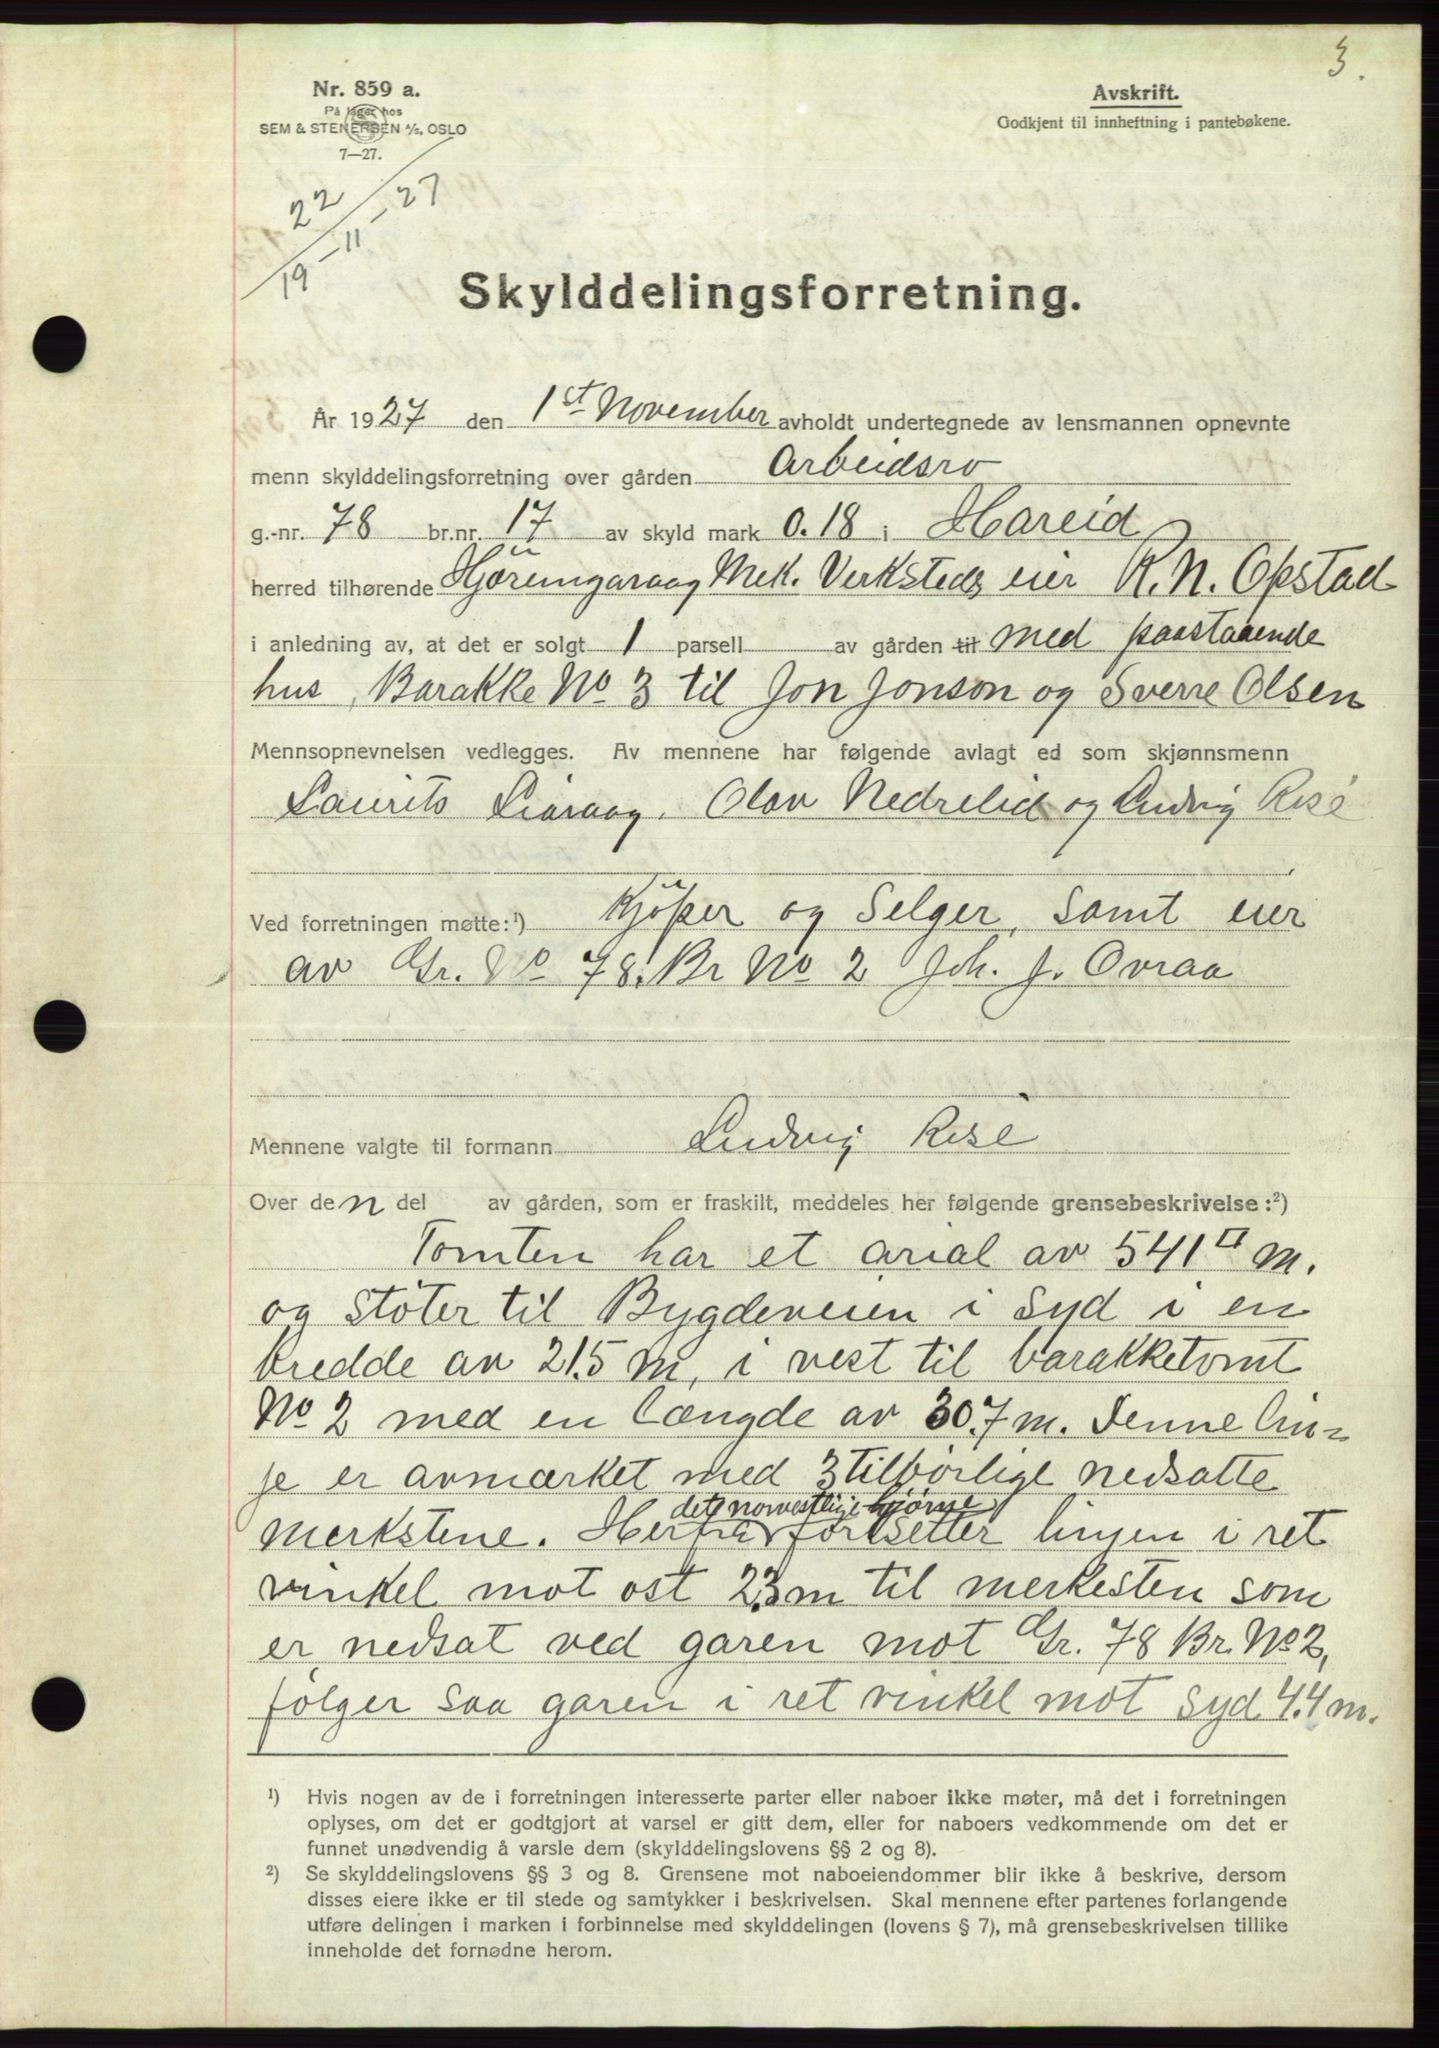 3.
Nr. 859 a.
På lager hos
SEM & STENERSEN A/S, OSLO
7—27.
Avskrift.
Godkjent til innheftning i pantebøkene.
22
19 – 11 – 27
Skylddelingsforretning.
År 1927 den 1st November avholdt undertegnede av lensmannen opnevnte
menn skylddelingsforretning over gården Arbeidsro
g.-nr. 78 br.nr. 17 av skyld mark 0.18 i Hareid
herred tilhørende Hjörungavaag Mek. Verksteds eier R. N. Opstad
i anledning av, at det er solgt 1 parsell av gården til med paastaaende
hus, Barakke No 3 til Jon Jonson og Sverre Olsen
Mennsopnevnelsen vedlegges. Av mennene har følgende avlagt ed som skjønnsmenn
Laurits Liavaag, Olav Nedrelid og Ludvig Risé
Ved forretningen møtte:¹) Kjöper og Selger, samt eier
av Gr. No 78. Br No 2 Joh. J. Ovraa
Mennene valgte til formann Ludvig Risé
Over den del av gården, som er fraskilt, meddeles her følgende grensebeskrivelse:²)
Tomten har et arial av 541 □ m.
og støter til Bygdeveien i syd i en
bredde av 21.5 m, i vest til barakketomt
No 2 med en længde av 30.7 m. Denne lin=
je er avmærket med 3 tilbørlige nedsatte
det norvestlige hjørne
merkstene. Herfra fortsetter linjen i ret
vinkel mot ost 23 m til merkesten som
er nedsat ved garen mot Gr. 78 Br. No 2,
følger saa garen i ret vinkel mot syd 4.4 m.
¹) Hvis nogen av de i forretningen interesserte parter eller naboer ikke møter, må det i forretningen
oplyses, om det er godtgjort at varsel er gitt dem, eller for naboers vedkommende om det er
funnet unødvendig å varsle dem (skylddelingslovens §§ 2 og 8).
²) Se skylddelingslovens §§ 3 og 8. Grensene mot naboeiendommer blir ikke å beskrive, dersom
disses eiere ikke er til stede og samtykker i beskrivelsen. Skal mennene efter partenes forlangende
utføre delingen i marken i forbinnelse med skylddelingen (lovens § 7), må grensebeskrivelsen tillike
inneholde det fornødne herom.